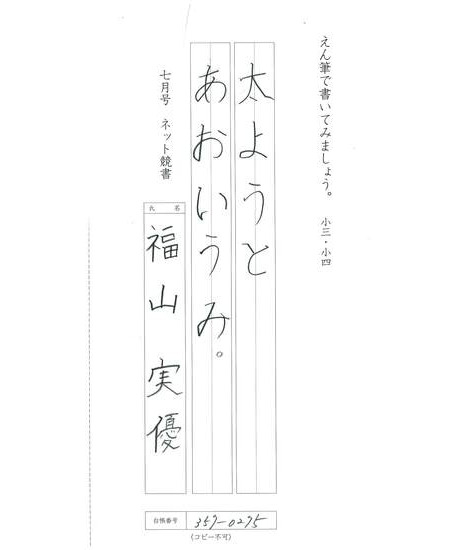 えん筆で書いてみましょう。 小三・小四
太ようと
あおいうみ。
七月号 ネット競書
氏 名
福山 実優
台帳番号 357-0275
(コピー不可)